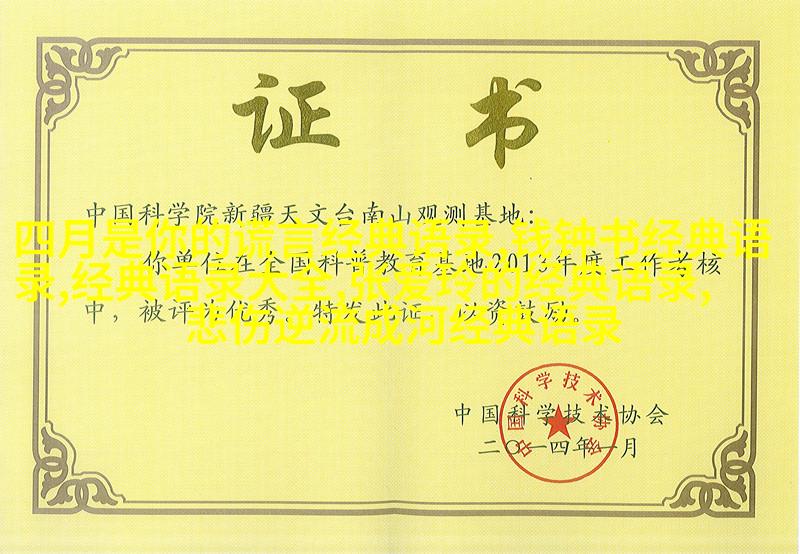 证 书
中国科学院新疆天文台南山观测基地:
四月是你的谎言经典语录,钱钟书经典语
你单位在全国科普教育基地2013年度工作考核
录,经典语录大全,张爱玲的经典语录,
中，被评为优秀。特发此证，以资鼓励。
悲伤逆流成河经典语录
中国科学技术协会
中国科学技术协会
二〇一四年一月